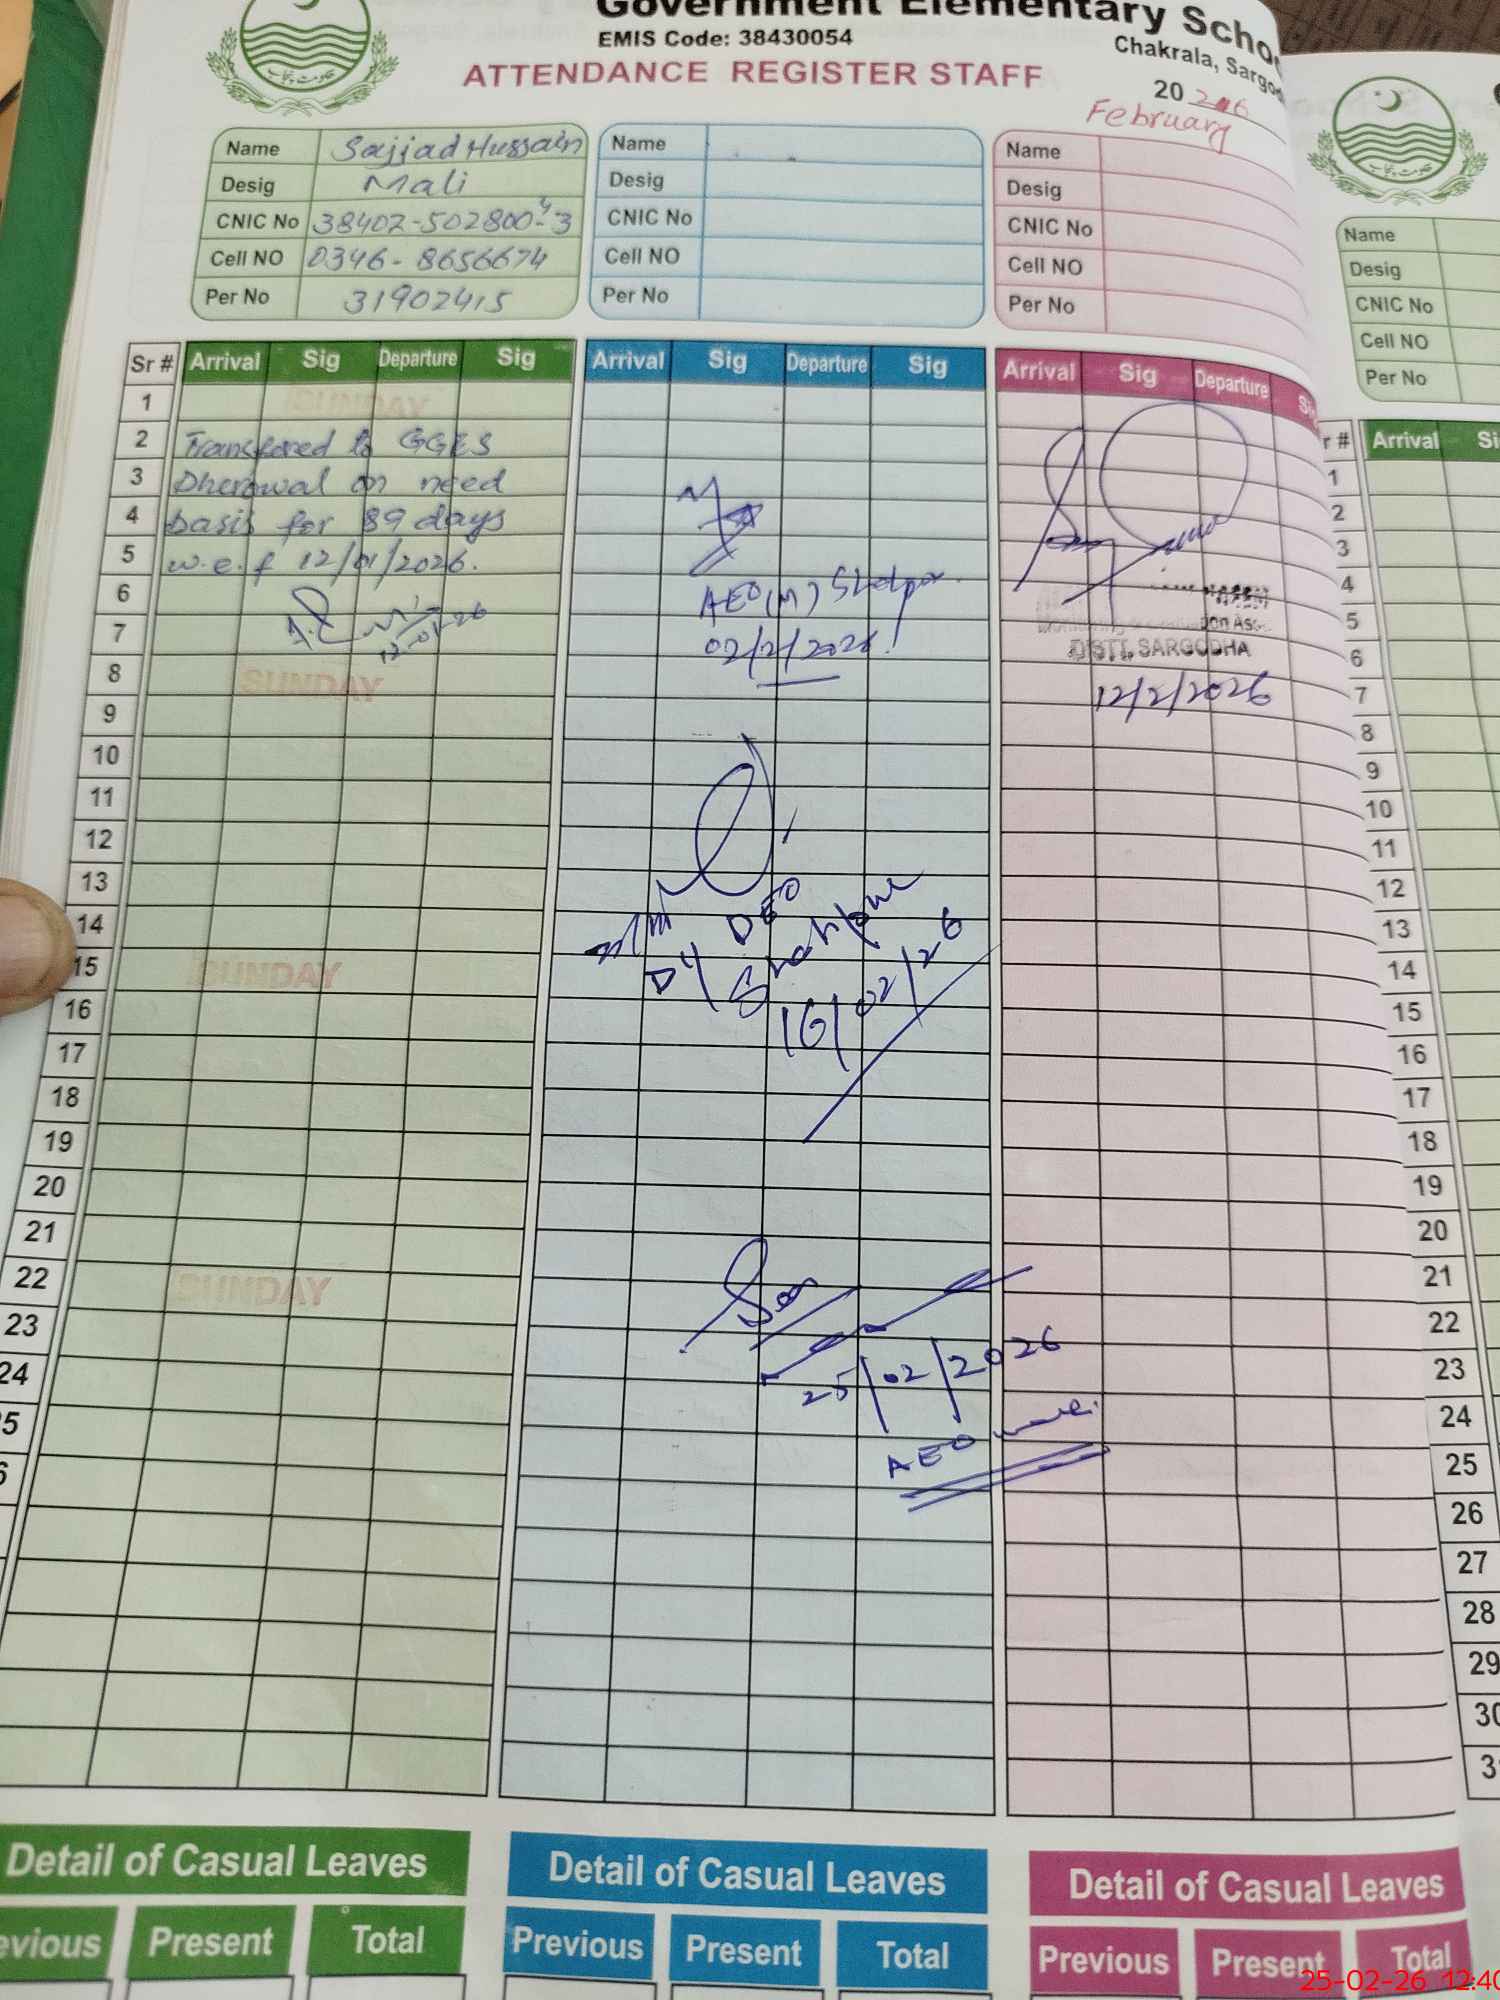 Government Elementary Scho
EMIS Code: 38430054
Chakrala, Sargo
ATTENDANCE REGISTER STAFF
20 26
February
Name Sajjad Hussain
Desig Mali
CNIC No 38402-5028004-3
Cell NO 0346-8656674
Per No 31902415
Name
Desig
CNIC No
Cell NO
Per No
Name
Desig
CNIC No
Cell NO
Per No
Name
Desig
CNIC No
Cell NO
Per No
Sr # Arrival Sig Departure Sig Arrival Sig Departure Sig Arrival Sig Departure Si
r # Arrival Si
1 SUNDAY
2 Transfered to GGES
3 Dherowal on need
4 basis for 89 days
5 w.e.f 12/01/2026.
6
7 12-01-26
8 SUNDAY
9
10
11
12
13
14
15 SUNDAY
16
17
18
19
20
21
22 SUNDAY
23
24
5
6
AEO (M)
02/2/2026.
DEO
Dy Shahpur
16/02/26
25/02/2026
AEO
DISTT. SARGODHA
12/2/2026
1
2
3
4
5
6
7
8
9
10
11
12
13
14
15
16
17
18
19
20
21
22
23
24
25
26
27
28
29
30
3
Detail of Casual Leaves
evious Present Total
Detail of Casual Leaves
Previous Present Total
Detail of Casual Leaves
Previous Present Total
25-02-26 12:40